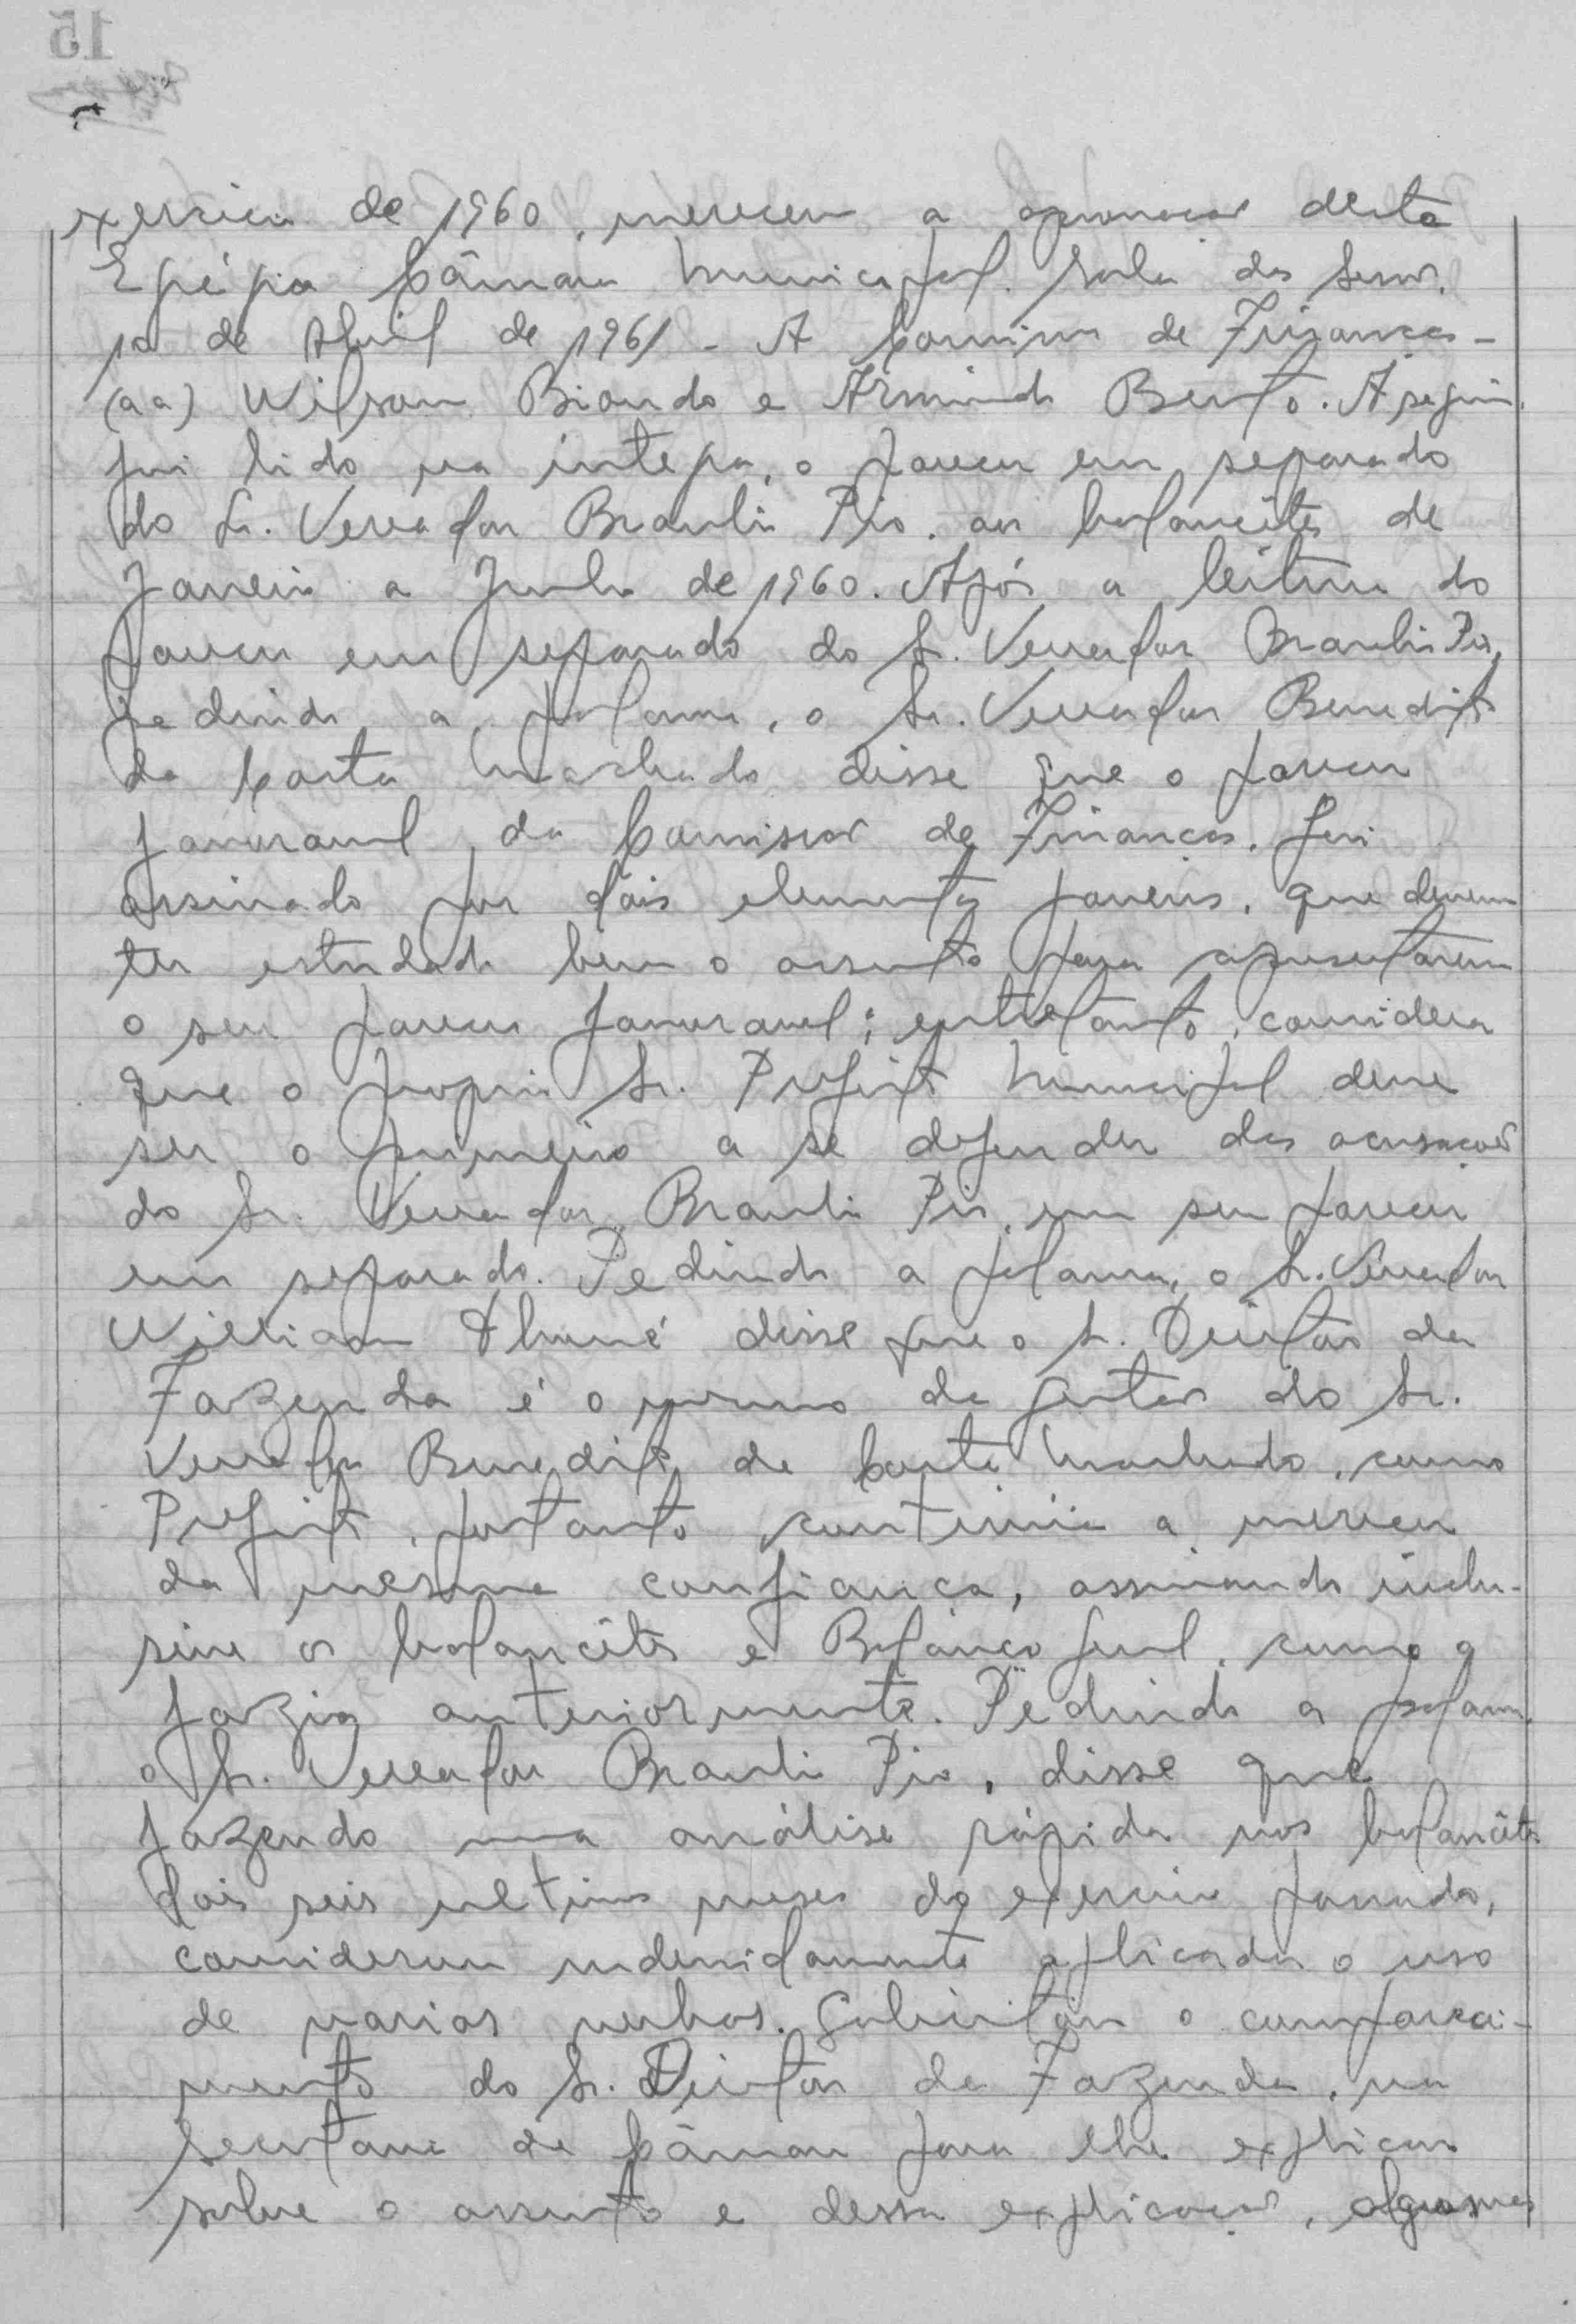 exercicio de 1960, merecem a aprovação desta
Egrégia Câmara Municipal. Sala das Sess.
de Abril de 1961 - A Comissão de Finanças -
(aa) Wilson Biondo e Armindo Bento. A seguir
foi lido na integra, o parecer em separado
do Sr. Vereador Braulio Pio, aos balancêtes de
Janeiro a Junho de 1960. Após a leitura do
parecer em separado do Sr. Vereador Braulio Pio,
pedindo a palavra, o Sr. Vereador Benedito
da Costa Machado disse que o parecer
favoravel da Comissão de Finanças, foi
assinado por dois elementos jovens, que devem
ter estudado bem o assunto para apresentarem
o seu parecer favoravel; entretanto, considera
que o proprio Sr. Prefeito Municipal deve
ser o primeiro a se defender das acusações
do Sr. Vereador Braulio Pio, em seu parecer
em separado. Pedindo a palavra, o Sr. Vereador
William disse que o Sr. Diretor da
Fazenda é o mesmo da gestão do Sr.
Vereador Benedito da Costa Machado, como
Prefeito, portanto continúa a merecer
da mesma confiança, assinando inclu-
sive os balancêtes e Balanço Geral, como o
fazia anteriormente. Pedindo a palavra,
o Sr. Vereador Braulio Pio, disse que
fazendo uma análise rápida nos balancêtes
dois seis ultimos meses do exercicio passado,
consideram indevidamente aplicado o uso
de varias verbas. Solicitou o compareci-
mento do Sr. Diretor da Fazenda, na
Secretaria da Câmara para lhe explicar
sobre o assunto e dessa explicação, algumas